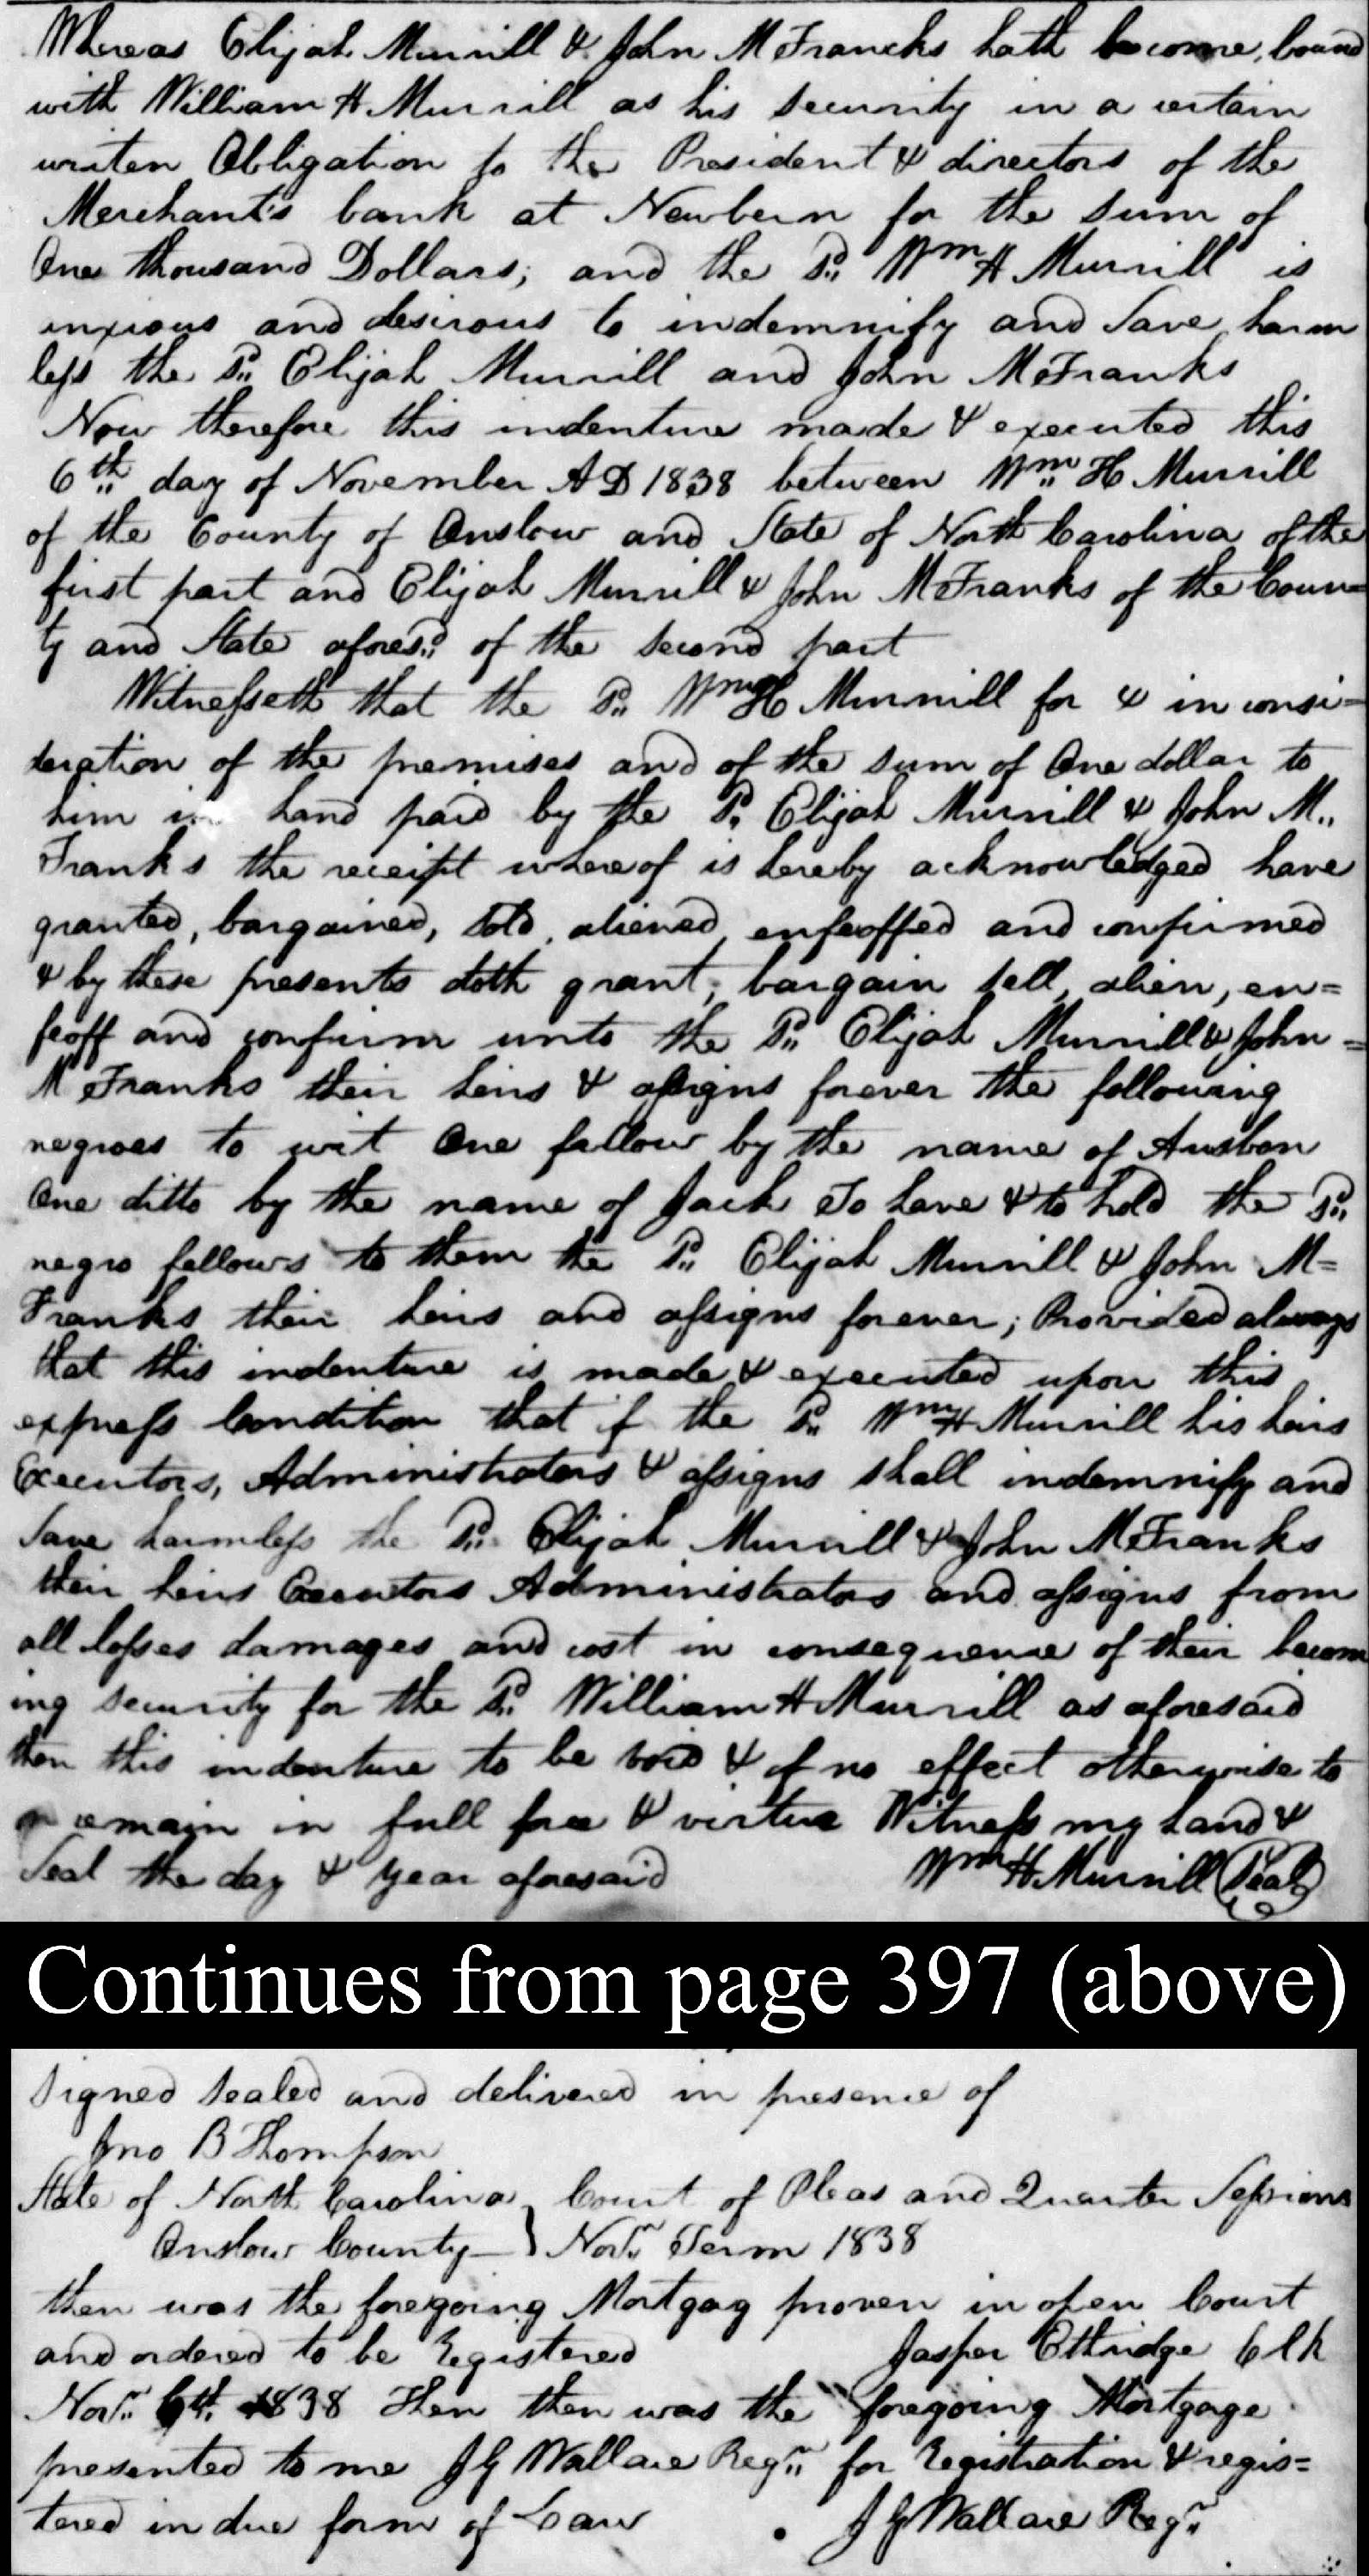 Whereas Elijah Murrill & John M Francks hath become, bound
with William H Murrill as his security in a certain
writen Obligation to the President & directors of the
Merchant's bank at Newbern for the sum of
One thousand Dollars; and the Sd. Wm H Murrill is
anxious and desirous to indemnify and Save harm
less the Sd. Elijah Murrill and John M Franks
Now therefore this indenture made & executed this
6th day of November A D 1838 between Wm. H Murrill
of the County of Onslow and State of North Carolina of the
first part and Elijah Murrill & John M Franks of the Coun=
ty and State aforesd. of the second part
Witnesseth that the Sd. Wm H Murrill for & in consi=
deration of the premises and of the sum of One dollar to
him in hand paid by the Sd. Elijah Murrill & John M..
Franks the receipt whereof is hereby acknowledged have
granted, bargained, Sold, aliened, enfeoffed and confirmed
& by these presents doth grant, bargain sell, alien, en=
feoff and confirm unto the Sd. Elijah Murrill & John =
M Franks their heirs & assigns forever the following
negroes to wit One fellow by the name of Ausbon
One ditto by the name of Jack To have & to hold the Sd.
negro fellows to them the Sd. Elijah Murrill & John M=
Franks their heirs and assigns forever; Provided always
that this indenture is made & executed upon this
express Condition that if the Sd. Wm H Murrill his heirs
Executors, Administrators & assigns shall indemnify and
Save harmless the Sd. Elijah Murrill & John M Franks
their heirs Executors Administrators and assigns from
all losses damages and cost in consequence of their becom
ing security for the Sd. William H Murrill as aforesaid
then this indenture to be void & of no effect otherwise to
remain in full force & virtue Witness my hand &
Seal the day & year aforesaid Wm H. Murrill (Seal)
Continues from page 397 (above)
Signed Sealed and delivered in presence of
Jno B Thompson
State of North Carolina } Court of Pleas and Quarter Sessions
Onslow County } Novr. Term 1838
then was the foregoing Mortgag proven in open Court
and ordered to be Registered Jasper Ettridge Clk
Novr. 6th. 1838 Then then was the foregoing Mortgage
presented to me J G Wallace Regr. for Registration & regis=
tered in due form of Law J G Wallace Regr.